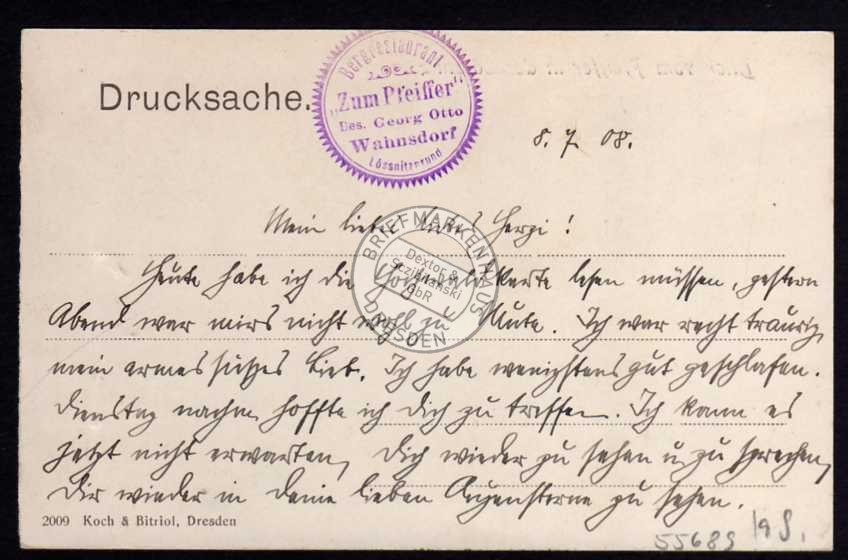 Bergrestaurant
"Zum Pfeiffer"
Bes. Georg Otto
Wahnsdorf
Lössnitzgrund
Drucksache.
8. 7. 08.
Mein liebes Herzi!
BRIEFMARKENHAUS
Dextor &
Scziemanski
GbR
DRESDEN
Heute habe ich die karte lesen müssen, gestern
Abend war mirs nicht wohl zu Mute. Ich war recht traurig,
mein armes süßes Lieb. Ich habe wenigstens gut geschlafen.
Dienstag nachm. hoffte ich Dich zu treffen. Ich kann es
jetzt nicht erwarten, Dich wieder zu sehen u. zu sprechen,
Dir wieder in Deine lieben Augensterne zu sehen.
2009 Koch & Bitriol, Dresden
55689